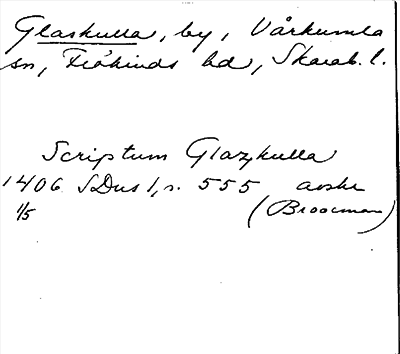 Glaskulla, by, Vårkumla
sn, Frökinds hd, Skarab. l.
Scriptum Glazkulla
1406 SDns 1, s. 555 avskr
1/5 (Broocman)